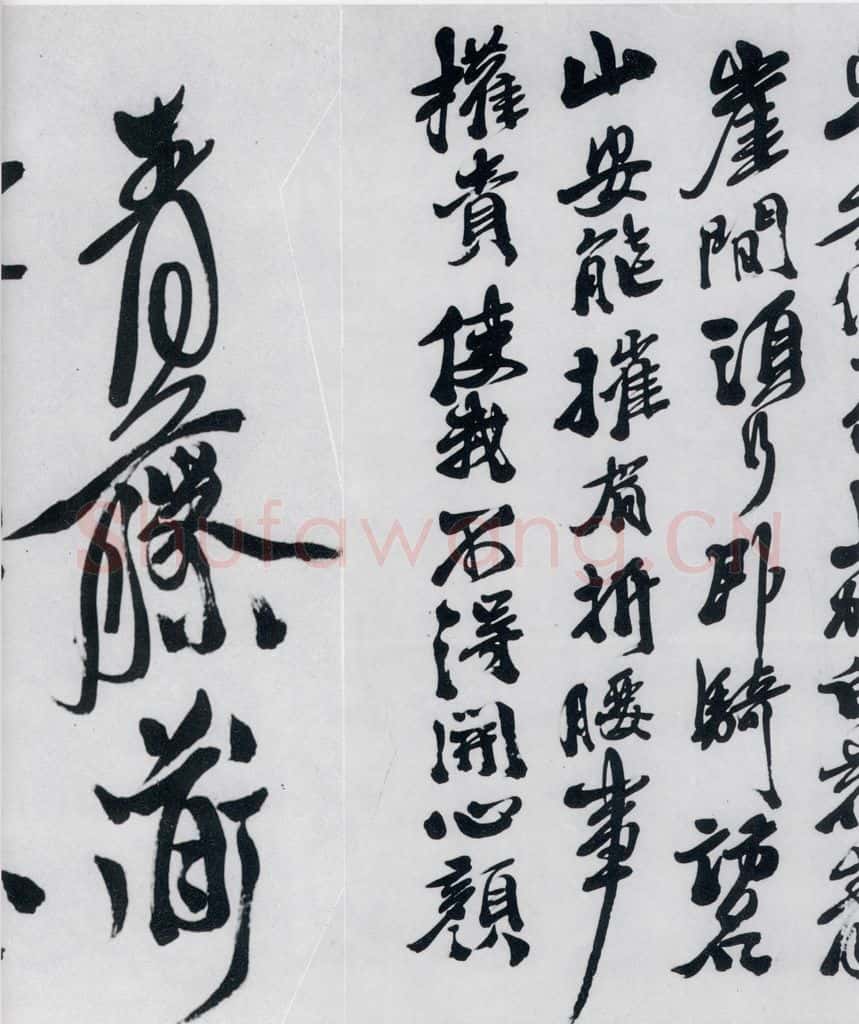 崖間須行即騎訪名
山安能摧眉折腰事
權貴使我不得開心顏
青藤道
Shufawang.CN